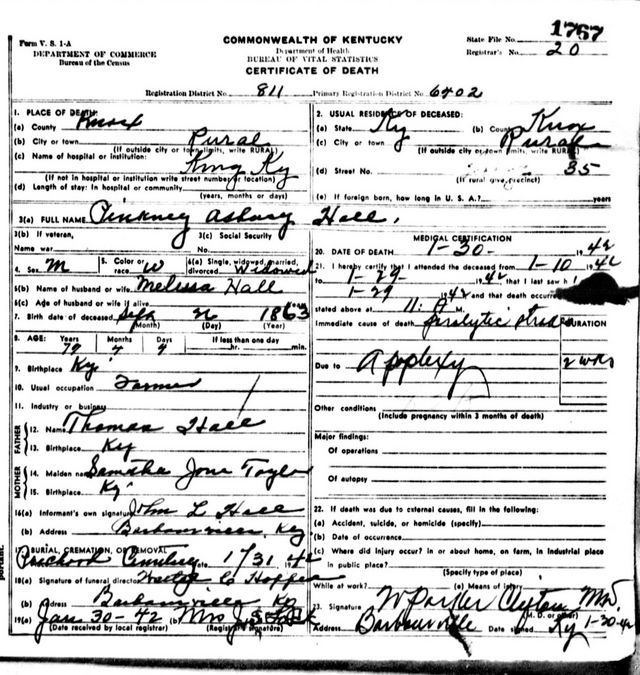 1767
Form V. S. 1-A
DEPARTMENT OF COMMERCE
Bureau of the Census
COMMONWEALTH OF KENTUCKY
Department of Health
BUREAU OF VITAL STATISTICS
CERTIFICATE OF DEATH
State File No.
Registrar's No. 20
Registration District No. 811 Primary Registration District No. 6402
1. PLACE OF DEATH
(a) County Knox
(b) City or town Rural
(If outside city or town limits, write RURAL)
(c) Name of hospital or institution: King Ky
(If not in hospital or institution write street number or location)
(d) Length of stay: In hospital or community
(years, months or days)
2. USUAL RESIDENCE OF DECEASED:
(a) State Ky (b) County Knox
(c) City or town Rural
(If outside city or town limits, write RURAL)
(d) Street No. 35
(If rural give precinct)
(e) If foreign born, how long in U. S. A.? years
3(a) FULL NAME Pinkney Asbury Hall.
3(b) If veteran,
Name war
3(c) Social Security
No.
4. Sex M 5. Color or race W 6(a) Single, widowed, married, divorced Widowed
6(b) Name of husband or wife Melissa Hall
6(c) Age of husband or wife if alive
7. Birth date of deceased Sept 26 1863
(Month) (Day) (Year)
8. AGE: Years Months Days If less than one day
79 4 4 hr. min.
9. Birthplace Ky
10. Usual occupation Farmer
11. Industry or business
FATHER
12. Name Thomas Hall
13. Birthplace Ky
MOTHER
14. Maiden name Samitha Jane Taylor
15. Birthplace Ky
16(a) Informant's own signature John L Hall
(b) Address Barbourville, Ky
17. BURIAL, CREMATION, OR REMOVAL
Cemetery Date 1/31 1942
18(a) Signature of funeral director Hopper
(b) Address Barbourville Ky
19(a) Jan 30-42 (b) Mrs
(Date received by local registrar) (Registrar's signature)
MEDICAL CERTIFICATION
20. DATE OF DEATH 1-30- 1942
21. I hereby certify that I attended the deceased from 1-10 1942
to 1-29 1942 that I last saw h
1-29 1942 and that death occurred
stated above at 11. A M.
Immediate cause of death paralytic stroke
DURATION
Due to Applexy 2 wks
Other conditions
(Include pregnancy within 3 months of death)
Major findings:
Of operations
Of autopsy
22. If death was due to external causes, fill in the following:
(a) Accident, suicide, or homicide (specify)
(b) Date of occurrence
(c) Where did injury occur? In or about home, on farm, in industrial place
in public place?
(Specify type of place)
While at work? (e) Means of injury
23. Signature W Parker Clayton MD.
(M. D. or other)
Address Barbourville Ky Date signed 1-30-42